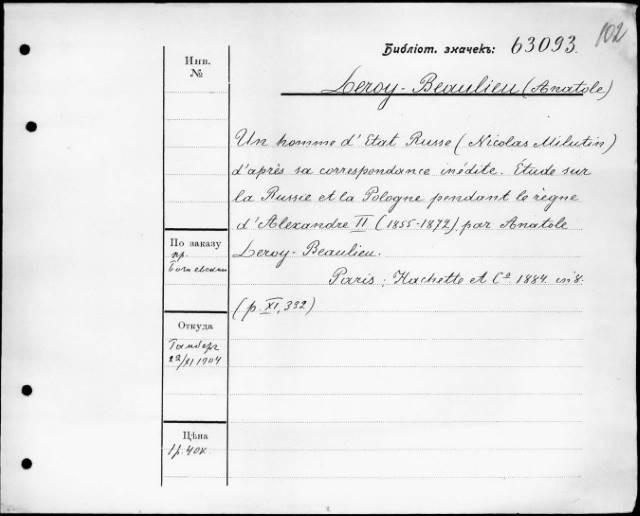 102
Библіот. значекъ: 63093.
Leroy-Beaulieu (Anatole)
Инв.
№
Un homme d'Etat Russe (Nicolas Milutin)
d'après sa correspondance inédite. Étude sur
la Russie et la Pologne pendant le règne
d'Alexandre II (1855-1872), par Anatole
Leroy-Beaulieu.
Paris; Hachette et Cº 1884. in 8.
(p. XI, 332)
По заказу
пр.
Откуда
22/XI 1904
Цѣна
1 р. 40 к.